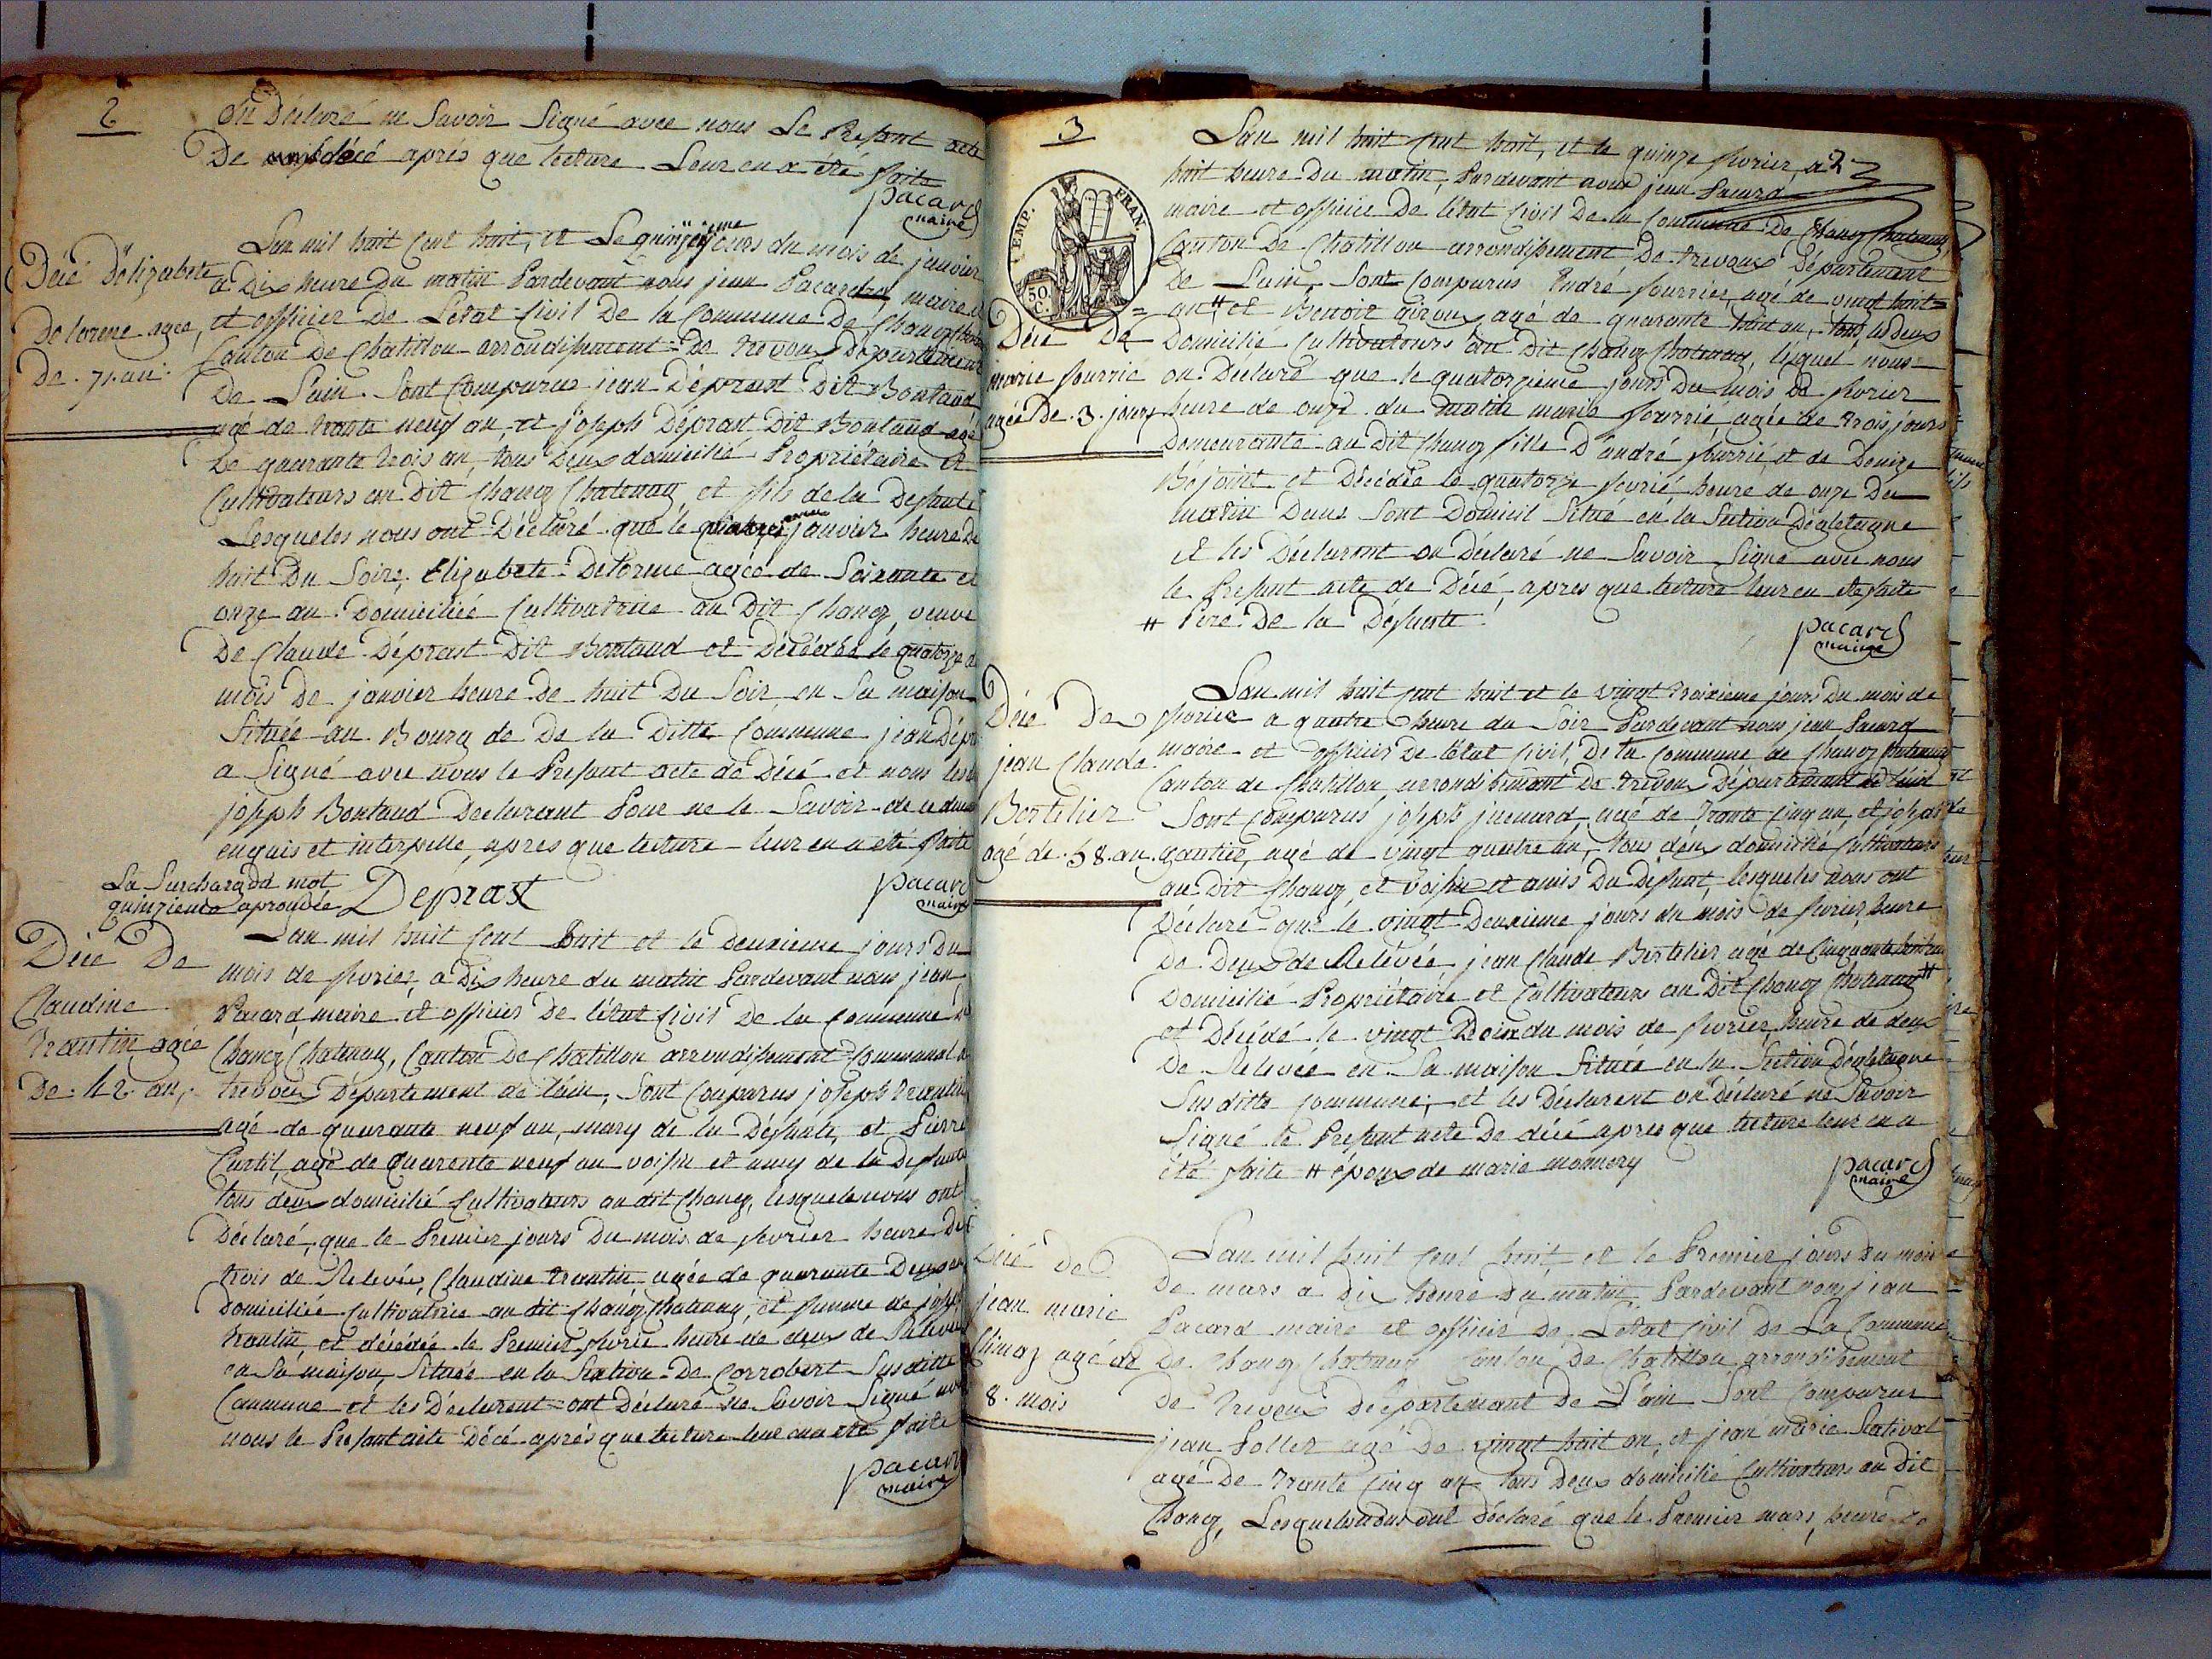 2
On Déclaré ne Savoir Signé avec nous Le Present acte
De décé après que lecture Leur en a été faite
pacard
maire
Décé D'élizabete
Delorme agée,
De. 71. an.
L'an mil huit Cent huit, et Le quinzieme jours du mois de janvier
a Dix heure Du matin Pardevant nous jean Pacard maire
et officier De L'etat Civil De la Commune De Chaneÿ Chatenaÿ
Canton De Chatillon arrondissement De Trevoux Département
De L'ain. Sont Comparus jean Déprast Dit Bontaud
agé de trante neuf an, et joseph Déprast Dit Bontaud agé
De quarante trois an, tous Deux domicilié Propriétaire et
Cultivateurs au Dit Chaneÿ Chatenaÿ et fils de la Defunte
Lesqueles nous ont Déclaré que le janvier heure De
huit Du Soire, Elizabete Delorme agée de Soixante et
onze an Domiciliée Cultivatrice au Dit Chaneÿ, veuve
De Claude Déprast Dit Bontaud et Décédée le quatorze
mois De janvier heure De huit Du Soir en Sa maison
Située au Bourg de De la Ditte Commune jean Dépr
a Signé avec nous le Present acte de Décé et non le
joseph Bontaud Declarant Pour ne le Savoir de ce
enquis et interpellé, apres que lecture leur en a été faite
La Surcharge du mot
quinzieme aprouvée
Deprast
pacard
maire
Décé De
Claudine
Trantin agée
De. 42. an,
L'an mil huit Cent huit et le deuxieme jours Du
mois de fevrier, a Dix heure du matin Pardevant nous jean
Pacard maire et officier De l'état Civil De la Commune De
Chaneÿ Chatenaÿ, Canton De Chatillon arrondissement Communal de
trevoux Département de l'ain, Sont Comparus joseph Trantin
agé de quarante neuf an, mary de la Défunte, et Pierre
Curtil, agé de quarente neuf an voisin et amy de la Defunte
tous deux domicilié Cultivateurs au dit Chaneÿ, lesqueles nous ont
Déclaré, que le Premier jours Du mois de fevrier heure De
trois de Relevée, Claudine trantin agée de quarante Deux an
Domiciliée Cultivatrice au dit Chaneÿ Chatenaÿ, et femme de joseph
trantin, et décédée le Premier fevrié heure de deux de Relevée
en Sa maison, Située en la Section De Corrobert Susditte
Commune et les Déclarent ont Déclaré ne Savoir Signé avec
nous le Present acte Décé après que lecture leur en a été faite
pacard
maire
3
TEMP. FRAN.
50 C.
L'an mil huit Cent huit, et le quinze fevrier, a
huit heure Du matin, Pardevant nous jean Pacard
maire et officier De l'état Civil De la Commune De Chaneÿ Chatenaÿ
Canton De Chatillon arrondissement De trevoux Département
De L'ain, Sont Comparus André fourrier agé de vingt huit
an # et Benoit Giroux agé de quarante huit an, tous les deux
Décé De
marie fourrié
agée De. 3. jours
Domicilié Cultivateurs au Dit Chaneÿ Chatenaÿ, lesquel nous
on Declaré que le quatorzieme jours Du mois De fevrier
heure de onze du matin marie fourrié, agée de trois jours
Demeurante au Dit Chaneÿ fille D'andré fourrié et de Denize
Béjoint et Décédée le quatorze fevrié heure de onze Du
matin Dans Sont Domicil Situé en la Section
et les Déclaront on Déclaré ne Savoir Signé avec nous
le Present acte de Décé, apres que lecture leur en été faite
# Pere De la Défunte
pacard
maire
Décé De
jean Claude
Bertelier
agé de. 58. an.
L'an mil huit Cent huit et le vingt troixieme jours Du mois de
fevrier a quatre heure du Soir Pardevant nous jean Pacard
maire et officier De l'état Civil, De la Commune de Chaneÿ Chatenaÿ
Canton de Chatillon arrondissement De trevoux Département de l'ain
Sont Comparus joseph juenard, agé de trante Cinq an, et joseph
gantier, agé de vingt quatre an, tous deux domicilié Cultivateurs
au Dit Chaneÿ, et voisin et amis Du Defunt, lesqueles nous ont
Déclaré que le vingt Deuxieme jours du mois de fevrier, heure
De Deux de Relevée jean Claude Bertelier agé de Cinquante huit an
Domicilié Propriétaire et Cultivateurs au Dit Chaneÿ Chatenaÿ #
et Décédé le vingt Deux du mois de fevrier, heure de deux
De Relevée en Sa maison Située en la Section
Sus ditte Commune, et les Déclarent on Déclaré ne Savoir
Signé le Present acte De décé apres que lecture leur en a
été faite # époux de marie monnery
pacard
maire
Décé De
jean marie
agé de
8. mois
L'an mil huit Cent huit et le Premier jours Du mois
De mars a dix heure Du matin, Pardevant nous jean
Pacard maire et officier de L'etat Civil De La Commune
De Chaneÿ Chatenaÿ Canton De Chatillon arrondissement
De Trevoux Département De L'ain Sont Comparus
jean Sollet agé De vingt huit an, et jean marie
agé De trante Cinq an tous Deux domicilié Cultivateurs au Dit
Chaneÿ, Lesqueles nous ont Déclaré que le Premier mars, heure De